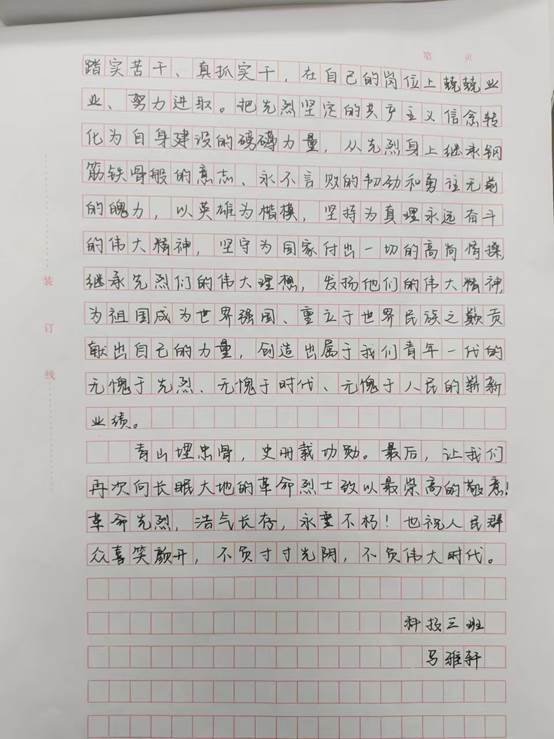 第 页
踏实苦干、真抓实干，在自己的岗位上兢兢业
业、努力进取。把先烈坚定的共产主义信念转
化为自身建设的磅礴力量，从先烈身上继承钢
筋铁骨般的意志、永不言败的韧劲和勇往无前
的魄力，以英雄为楷模，坚持为真理永远奋斗
的伟大精神，坚守为国家付出一切的高尚情操
继承先烈们的伟大理想，发扬他们的伟大精神
为祖国成为世界强国、重立于世界民族之巅贡
献出自己的力量，创造出属于我们青年一代的
无愧于先烈、无愧于时代、无愧于人民的崭新
业绩。
青山埋忠骨，史册载功勋。最后，让我们
再次向长眠大地的革命烈士致以最崇高的敬意！
革命先烈，浩气长存，永垂不朽！也祝人民群
众喜笑颜开，不负寸寸光阴，不负伟大时代。
科技三班
马雅轩
装
订
线